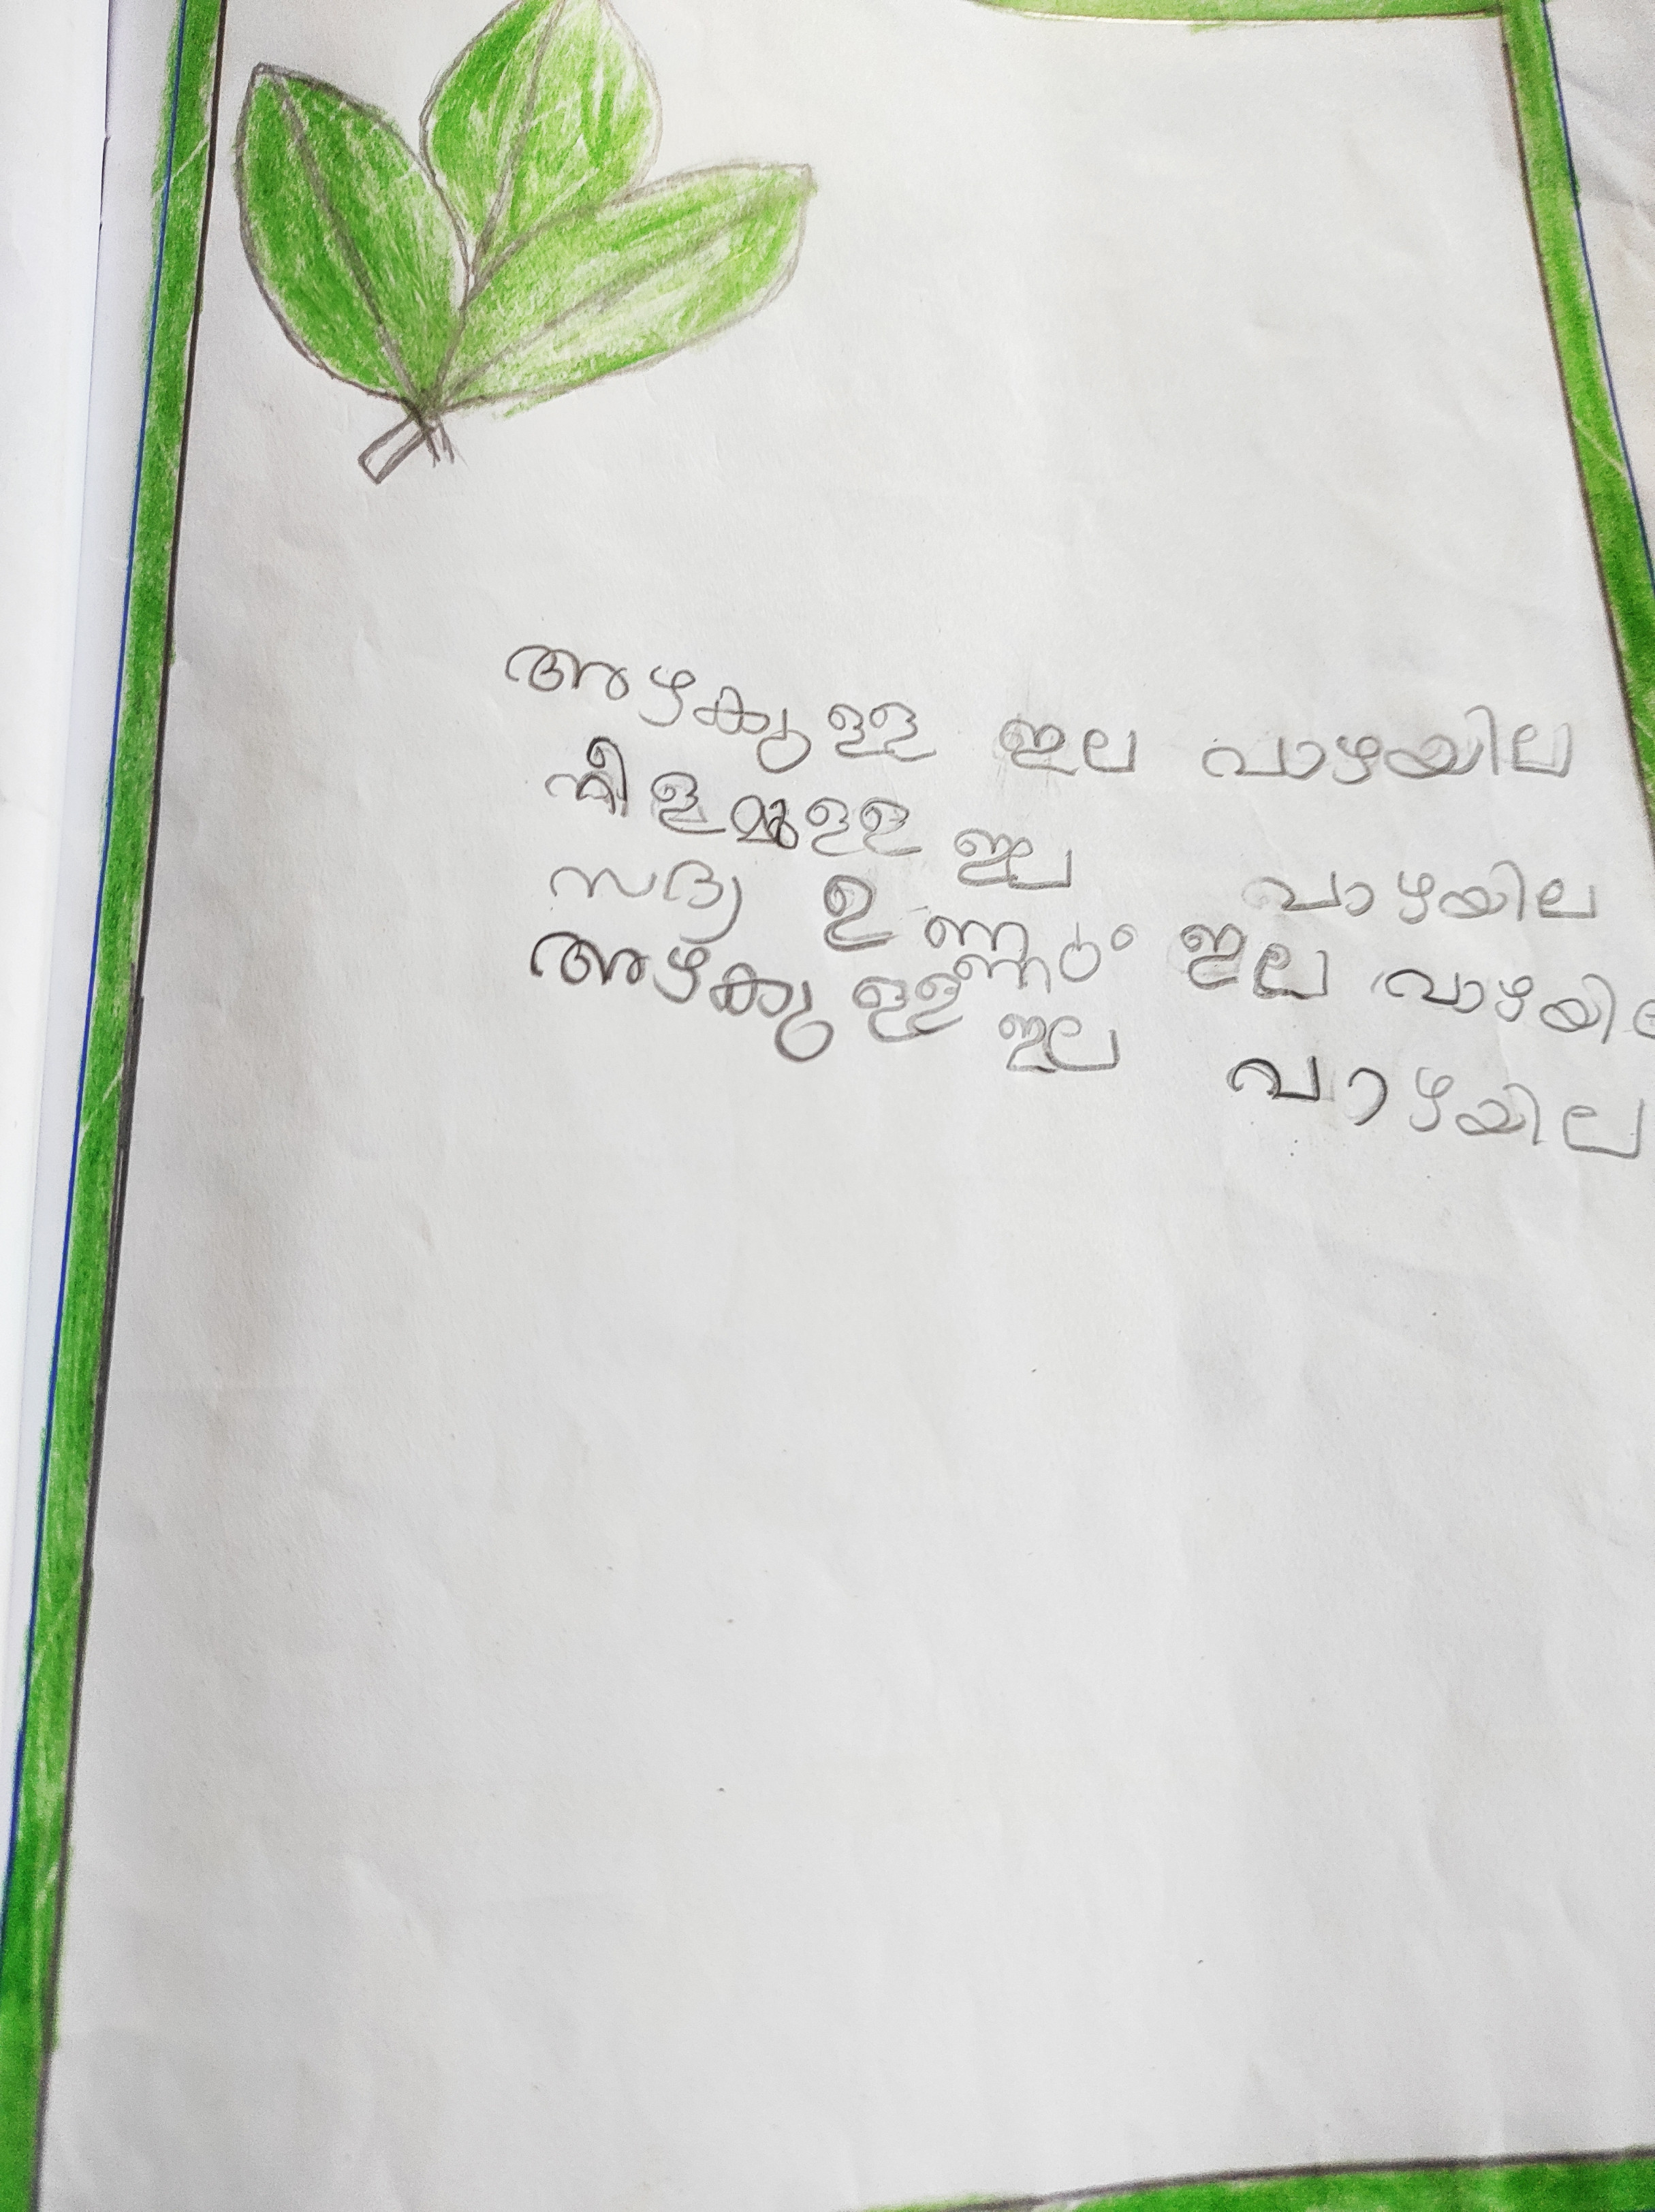 അഴകുള്ള ഇല വാഴയില
നീളമുള്ള ഇല വാഴയില
സദ്യ ഉണ്ണും ഇല വാഴയില
അഴകുള്ള ഇല വാഴയില